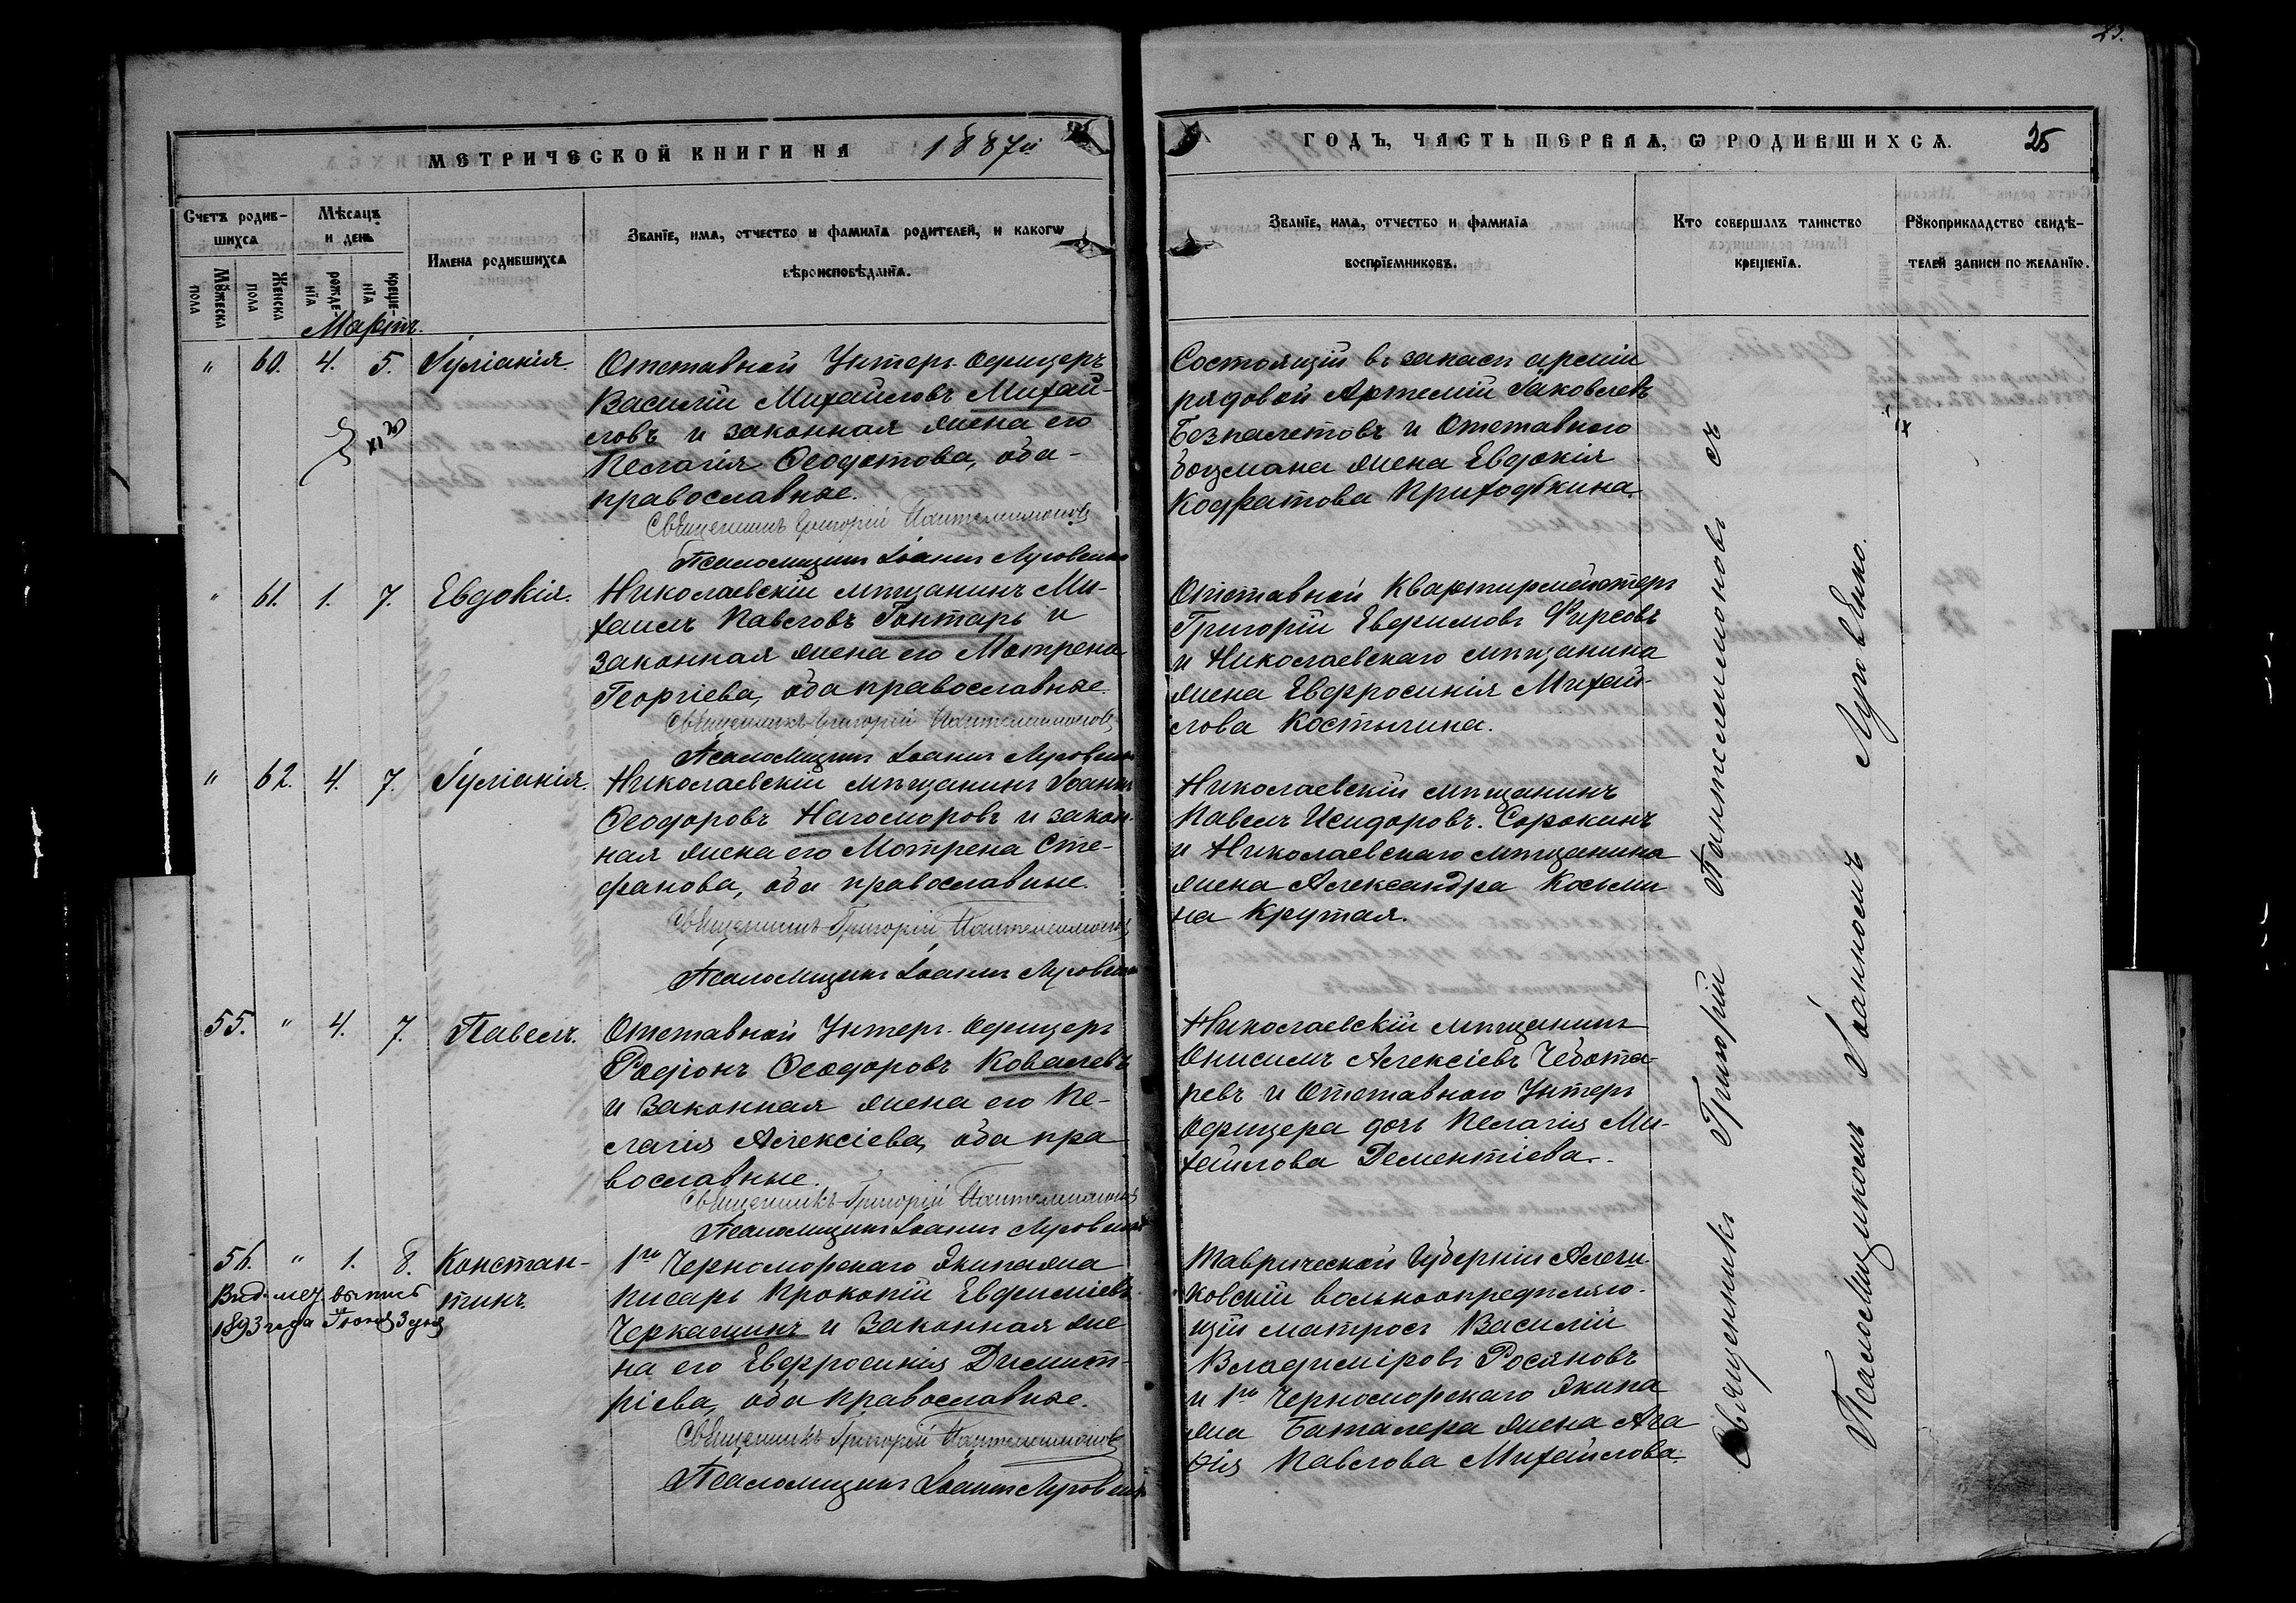 25.
МЕТРИЧЕСКОЙ КНИГИ НА 1887й
ГОДЪ, ЧАСТЬ ПЕРВАѦ, Ѡ РОДИВШИХСѦ. 25
Счетъ родив-
шихсѧ
Мѣсѧцъ
и день
Имена родившихсѧ
Званїе, имѧ, отчество и фамилїѧ родителей, и какогѡ
вѣроисповѣданїѧ.
Мꙋжеска
пола
Женска
пола
рожде-
нїѧ
креще-
нїѧ
Званїе, имѧ, отчество и фамилїѧ
воспрїемниковъ.
Кто совершалъ таинство
крещенїѧ.
Рꙋкоприкладство свидѣ-
телей записи по желанїю.
Мартъ.
" 60. 4. 5. Іуліанія.
Отставной Унтеръ-офицеръ
Василій Михайловъ Михай-
ловъ и законная жена его
Пелагія Ѳеодотова, оба-
православные.
Священникъ Григорій Пантелеимоновъ
Псаломщикъ Іоаннъ Луговенко
Состоящій въ запасѣ арміи
рядовой Артемій Іаковлевъ
Безпалетовъ и Отставного
боцмана жена Евдокія
Кодратова Приходькина.
" 61. 1. 7. Евдокія.
Николаевскій мѣщанинъ Ми-
хаилъ Павловъ Гонтарь и
законная жена его Мотрена
Георгіева, оба православные.
Священникъ Григорій Пантелеимоновъ
Псаломщикъ Іоаннъ Луговенко
Отставной Квартирмейстеръ
Григорій Евфимовъ Фирсовъ
и Николаевскаго мѣщанина
жена Евфросинія Михай-
лова Костылина.
" 62. 4. 7. Іуліанія.
Николаевскій мѣщанинъ Іоаннъ
Ѳеодоровъ Нагоморовъ и закон-
ная жена его Мотрена Сте-
фанова, оба православные.
Священникъ Григорій Пантелеимоновъ
Псаломщикъ Іоаннъ Луговенко
Николаевскій мѣщанинъ
Павелъ Исидоровъ Сорокинъ
и Николаевскаго мѣщанина
жена Александра Косьми-
на Крутая.
55. " 4. 7. Павелъ.
Отставной Унтеръ-офицеръ
Родіонъ Ѳеодоровъ Ковалевъ
и законная жена его Пе-
лагія Алексіева, оба пра
вославные.
Священникъ Григорій Пантелеимоновъ
Псаломщикъ Іоаннъ Луговенко
Николаевскій мѣщанинъ
Онисимъ Алексіевъ Чебота-
ревъ и Отставного Унтеръ
офицера дочь Пелагія Ми-
хайлова Дементіева.
56. " 1. 8. Констан-
тинъ.
Выд. мет. выпись
1893 года Іюня 3 дня
1го Черноморскаго Экипажа
писарь Прокопій Евфиміевъ
Черкашинъ и законная же
на его Евфросинія Димит-
ріева, оба православные.
Священникъ Григорій Пантелеимоновъ
Псаломщикъ Іоаннъ Луговенко
Таврической Губерніи Алеш-
ковскій вольноопредѣляю-
щій матросъ Василій
Владиміровъ Росяновъ
и 1го Черноморскаго Экипа
жа Баталера жена Ага
ѳія Павлова Михайлова.
Священникъ Григорій Пантелеимоновъ съ
Псаломщикомъ Іоанномъ Луговенко.